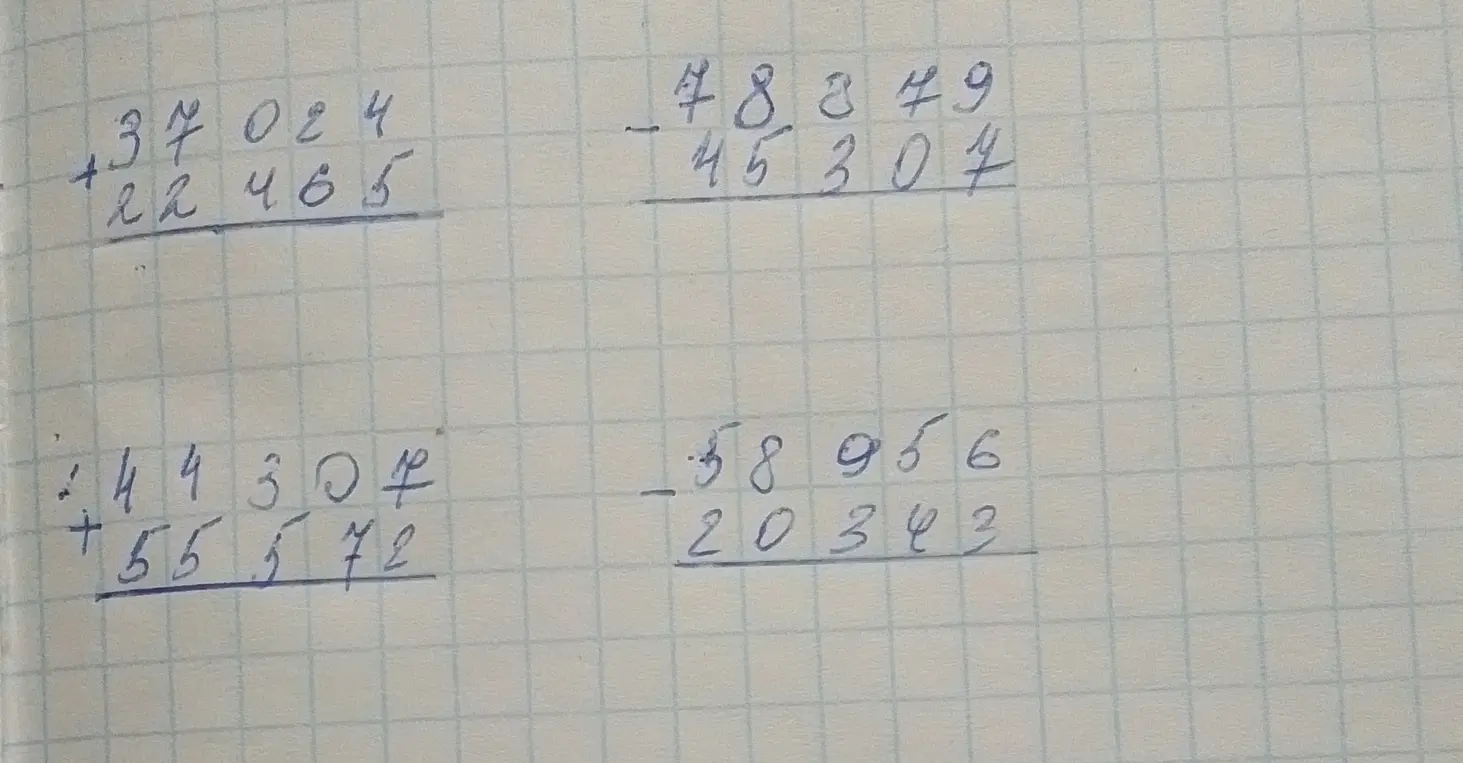 + 37 024
22 465
- 78 879
45 307
+ 44 307
55 572
- 58 956
20 343